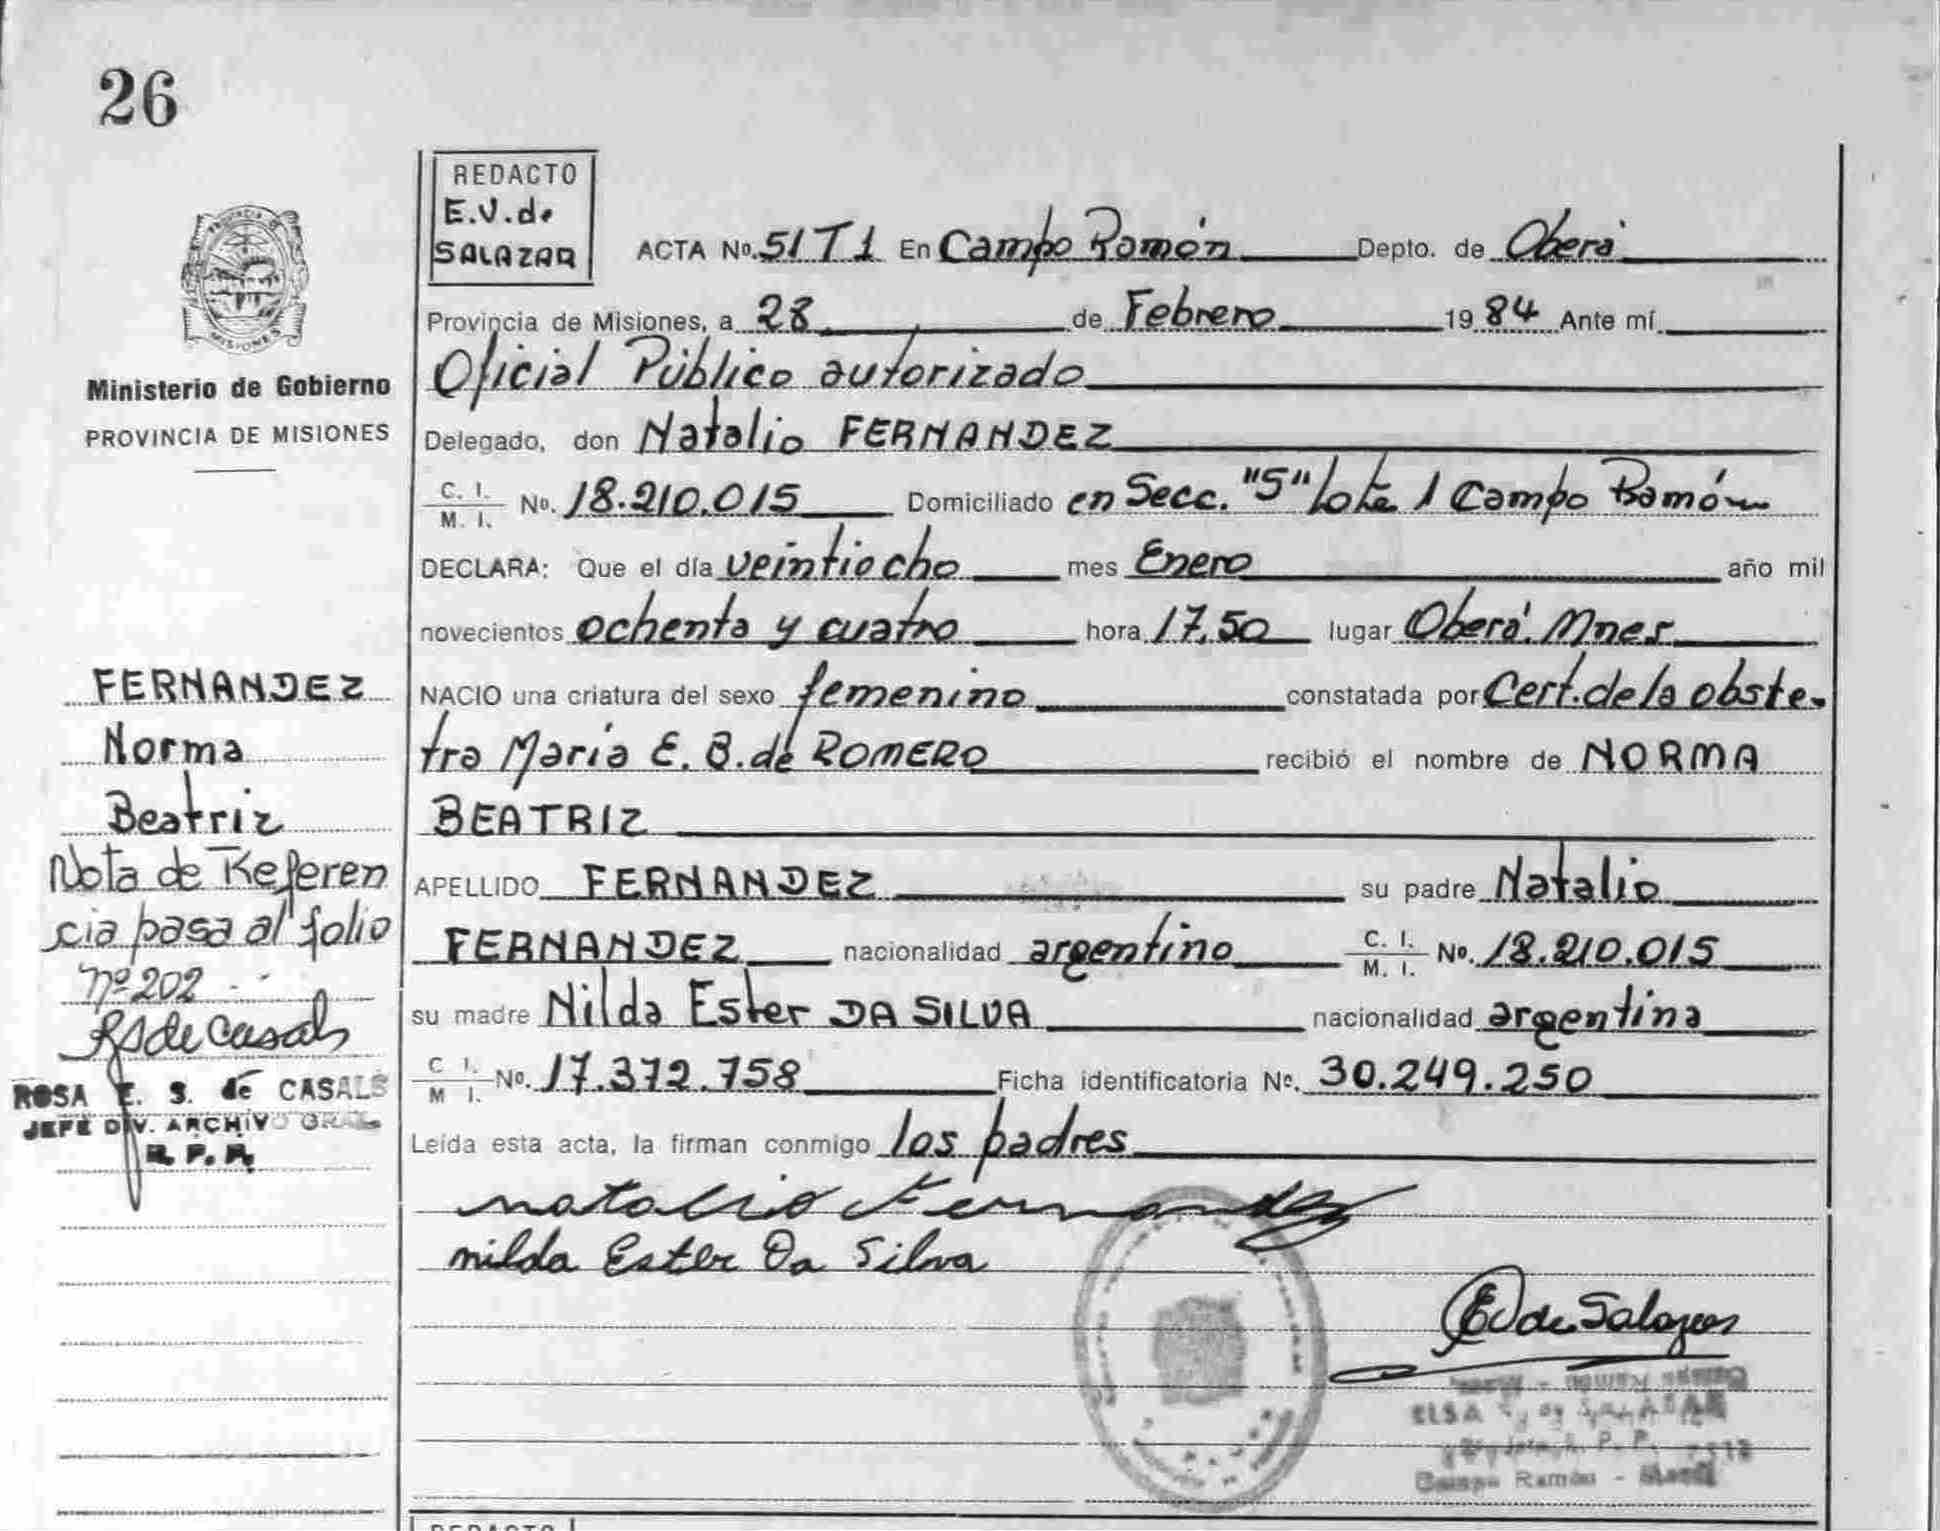 26
REDACTO
E.V.de
SALAZAR
ACTA No. 51 T1 En Campo Ramón Depto. de Oberá
Provincia de Misiones, a 28 de Febrero 1984 Ante mí
Oficial Público autorizado
Ministerio de Gobierno
PROVINCIA DE MISIONES
Delegado, don Natalio FERNANDEZ
C. I. M. I. No. 18.210.015 Domiciliado en Secc. "5" lote 1 Campo Ramón
DECLARA: Que el día veintiocho mes Enero año mil
novecientos ochenta y cuatro hora 17,50 lugar Oberá. Mnes
NACIO una criatura del sexo femenino constatada por Cert. de la obste-
tra María E. B. de ROMERO recibió el nombre de NORMA
BEATRIZ
APELLIDO FERNANDEZ su padre Natalio
FERNANDEZ nacionalidad argentino C. I. M. I. No. 18.210.015
su madre Nilda Ester DA SILVA nacionalidad argentina
C I. M I. No. 17.372.758 Ficha identificatoria No. 30.249.250
Leída esta acta, la firman conmigo los padres
natalio Fernandez
nilda Ester Da Silva
EVdeSalazar
ELSA V. de SALAZAR
R. P. P.
Campo Ramón -
FERNANDEZ
Norma
Beatriz
Nota de Referen
cia pasa al folio
nº 202
RSdeCasals
ROSA E. S. de CASALS
JEFE DIV. ARCHIVO GRAL
R. P. P.
REDACTO